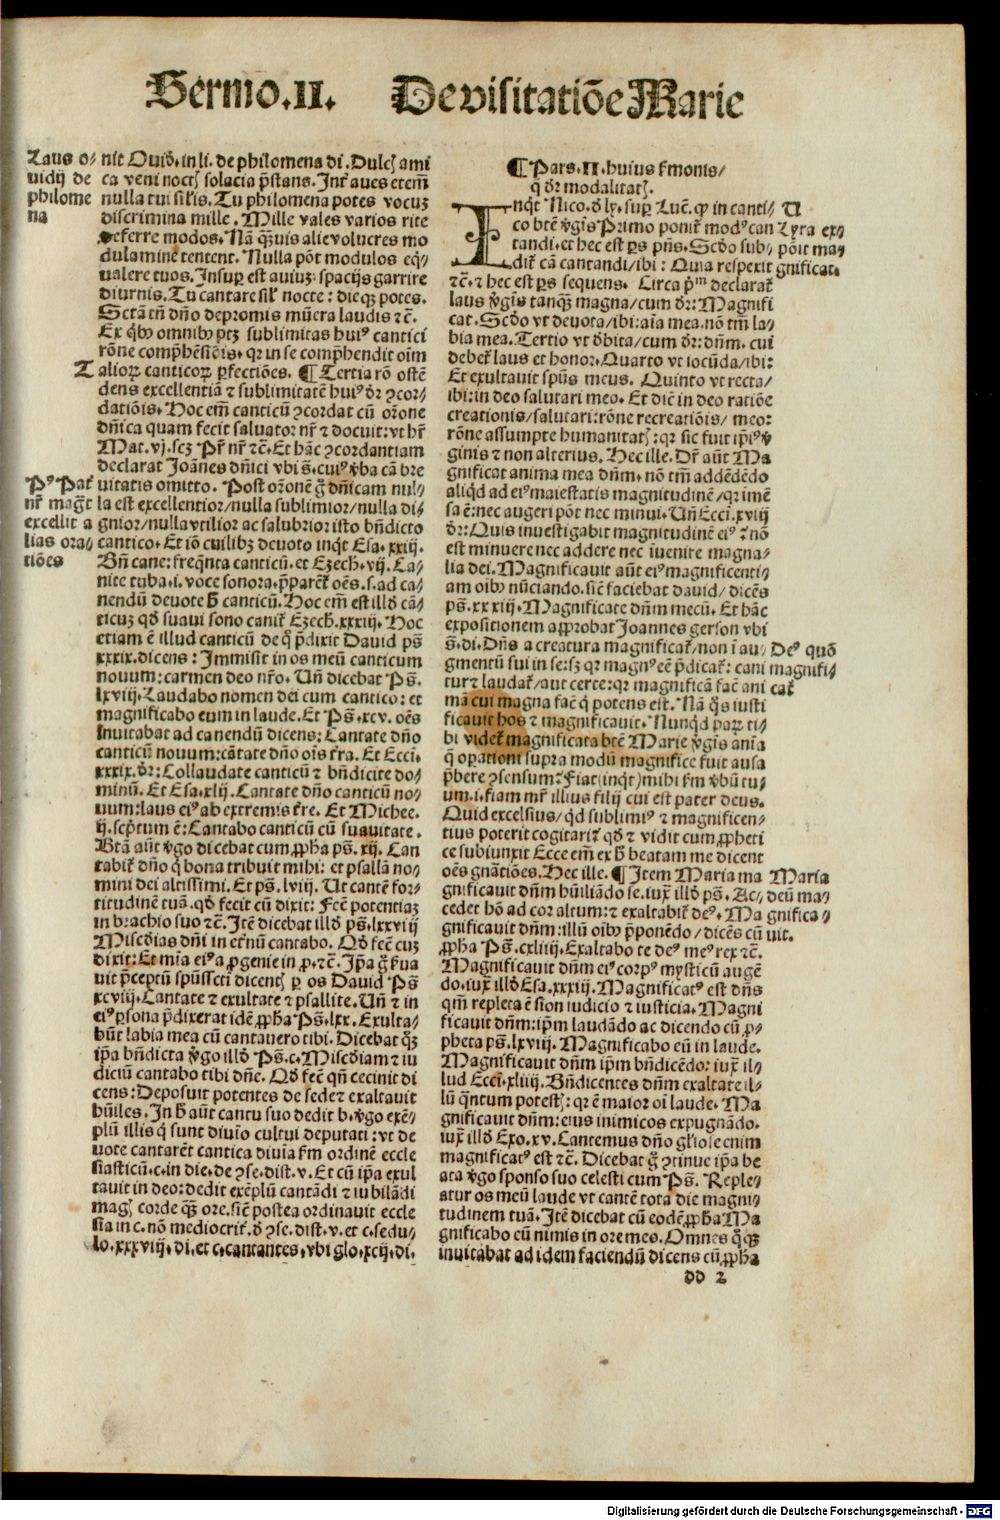 Sermo.II. De visitatiōe Marie
Laus o⸗
uidij de
philome
na
nit Ouid̄. in li. de philomena di. Dulcis ami
ca veni noctis solacia p̄stans. Int̄ aues etem̄
nulla tui sil̄is. Tu philomena potes vocuꝫ
discrimina mille. Mille vales varios rite
referre modos. Nā q̄uis alie volucres mo
dulamine tentent. Nulla pōt modulos eq̄⸗
ualere tuos. Insuꝑ est auiuꝫ spacijs garrire
diurnis. Tu cantare sil̄ nocte: dieqꝫ potes.
Sctā tn̄ dn̄o depromis mūera laudis ⁊c̄.
Ex qͥbꝰ omnibꝰ ptꝫ sublimitas huiꝰ cantici
rōne compᵉhēsiēis. qꝛ in se compᵉhendit oīm
alioꝝ canticoꝝ ꝑfectiōes. ¶ Tertia rō ostē
dens excellentiā ⁊ sublimitatē huiꝰ dr̄ ꝯcor⸗
datiōis. Hoc em̄ canticū ꝯcordat cū or̄one
dn̄ica quam fecit saluator nr̄ ⁊ docuit: vt hr̄
Mat. vj. scꝫ Pr̄ nr̄ ⁊c̄. Et hāc ꝯcordantiam
declarat Joānes dn̄ici vbi s̄. cuiꝰ v̄ba cā bre
uitatis omitto. Post or̄onē g̊ dn̄icam nul⸗
la est excellentior/nulla sublimior/nulla di⸗
gnior/nulla vtilior ac salubrior isto bn̄dicto
cantico. Et iō cuilibꝫ deuoto inqͥt Esa. xxiij.
Bn̄ cane: freqn̄ta canticū. et Ezech. vij. Ca⸗
nite tuba. i. voce sonora. p̄parēt̄ oēs. s. ad ca⸗
nendū deuote h̄ canticū. Hoc em̄ est illd̄ cā⸗
ticuꝫ qd̄ suaui sono canit̄ Ezech. xxxiij. Hoc
etiam ē illud canticū de q̊ p̄dixit Dauid ps̄
xxxix. dicens: Immisit in os meū canticum
nouum: carmen deo nr̄o. Un̄ dicebat Ps̄.
lxviij. Laudabo nomen dei cum cantico: et
magnificabo eum in laude. Et Ps̄. xcv. oēs
inuitabat ad canendū dicens: Cantate dn̄o
canticū nouum: cātate dn̄o oīs t̄ra. Et Ecci.
xxxix. dr̄: Collaudate canticū ⁊ bn̄dicite do⸗
minū. Et Esa. xlij. Cantate dn̄o canticū no⸗
uum: laus eiꝰ ab extremis t̄re. Et Michee.
ij. scptum ē: Cantabo canticū cū suauitate.
Btā aūt v̄go dicebat cum ꝓpha ps̄. xij. Can
tabit̄ dn̄o q̄ bona tribuit mihi: et psallā no⸗
mini dei altissimi. Et ps̄. lviij. Ut cantē for⸗
titudinē tuā. qd̄ fecit cū dixit: Fecē potentiaꝫ
in brachio suo ⁊c̄. Itē dicebat illd̄ ps̄. lxxviij
Miscd̄ias dn̄i in et̄nū cantabo. Qd̄ fecē cuꝫ
dixit: Et mīa eiꝰ a ꝓgenie in ꝓ. ⁊c̄. Ipa g̊ ẜua
uit p̄ceptū spūssctī dicentis ꝑ os Dauid Ps̄
xcviij. Cantate ⁊ exultate ⁊ psallite. Un̄ ⁊ in
eiꝰ ꝑsona p̄dixerat idē ꝓpha Ps̄. lxx. Exulta⸗
būt labia mea cū cantauero tibi. Dicebat qͣꝫ
ipa bn̄dicta v̄go illd̄ Ps̄. c. Miscd̄iam ⁊ iu
diciū cantabo tibi dn̄e. Qd̄ fecē qn̄ cecinit di
cens: Deposuit potentes de sede⁊ exaltauit
hūiles. In h̄ aūt cantu suo dedit b. v̄go exē⸗
plū illis q̇ sunt diuīo cultui deputati: vt de
uote cantarēt cantica diuīa ẜm ordinē eccle
siasticū. c. in die. de ꝯse. dist. v. Et cū ipa exul
tauit in deo: dedit exēplū cantādi ⁊ iubilādi
magis corde qͣꝫ ore. sicē postea ordinauit eccle
sia in c. nō mediocrit̄. d̄ ꝯse. dist. v. et c. sedu⸗
lo. xxxviij. di. et c. cantantes. vbi glo. xcij. di.
Pꝰ Pat̄
nr̄ magt̄
excellit a
lias ora⸗
tiōes
¶ Pars. II. huius ẜmonis/
q̇ dr̄ modalitatis.
Inqͥt Nico. d̄ ly. suꝑ Luc̄. qꝫ in canti⸗
co btē v̄gīs Primo ponit̄ modꝰ can
tandi. et hec est ps pn̄s. Scd̄o sub⸗
dit̄ cā cantandi/ibi: Quia respexit
⁊c̄. ⁊ hec est ps sequens. Circa pͫ declarat̄
laus v̄gīs tanqͣꝫ magna/cum dr̄: Magnifi
cat. Scd̄o vt deuota/ibi: aīa mea. nō tm̄ la⸗
bia mea. Tertio vt d̄bita/cum dr̄: dn̄m. cui
debet̄ laus et honor. Quarto vt iocūda/ibi:
Et exultauit spūs meus. Quinto vt recta/
ibi: in deo salutari meo. Et diē in deo ratiōe
creationis/salutari: rōne recreatiōis/meo:
rōne assumpte humanitatis: qꝛ sic fuit ipīꝰ v̄
ginis ⁊ non alterius. Hec ille. Dr̄ aūt Ma
gnificat anima mea dn̄m. nō tm̄ addēdēdo
aliqd̄ ad eiꝰ maiestatis magnitudinē/qꝛ imē
sa ē: nec augeri pōt nec minui. Un̄ Ecci. xviij
dr̄: Quis inuestigabit magnitudinē eiꝰ ⁊ nō
est minuere nec addere nec iuenire magna⸗
lia dei. Magnificauit aūt eiꝰ magnificenti⸗
am oibꝰ nūciando. sicē faciebat dauid/dicēs
ps̄. xxxiij. Magnificate dn̄m mecū. Et hāc
expositionem approbat Joannes gerson vbi
s̄. di. Dn̄s a creatura magnificat̄/non ī au⸗
gmentū sui in se: sꝫ qꝛ magnꝰ eē p̄dicat̄: cani
tur⁊ laudat̄/aut certe: qꝛ magnificā facē ani
mā cui magna facē q̇ potens est. Nā qͦs iusti
ficauit hos ⁊ magnificauit. Nunqd̄ paꝝ ti⸗
bi videt̄ magnificata btē Marie v̄gīs anīa
q̄ opationi supra modū magnifice fuit ausa
p̄bere ꝯsensum: Fiat (inqt) mihi ẜm v̄bū tu⸗
um. i. fiam mr̄ illius filij cui est pater deus.
Quid excelsius/qd̄ sublimiꝰ ⁊ magnificen⸗
tius poterit cogitari⁊ qd̄ ⁊ vidit cum ꝓpheti
ce subiunxit Ecce em̄ ex h̄ beatam me dicent
oēs gnātiōes. Hec ille. ¶ Item Maria ma
gnificauit dn̄m hūiliādo se. iux̄ illd̄ ps̄. Ac⸗
cedet hō ad cor altum: ⁊ exaltabit̄ deꝰ. Ma
gnificauit dn̄m: illū oibꝰ p̄ponēdo/dicēs cū
ꝓpha Ps̄. cxliiij. Exaltabo te deꝰ meꝰ rex ⁊c̄.
Magnificauit dn̄m eiꝰ corpꝰ mysticū augē
do. iux̄ illd̄ Esa. xxxiij. Magnificatꝰ est dn̄s
qm̄ repleta ē sion iudicio ⁊ iusticia. Magni
ficauit dn̄m: ipm̄ laudādo ac dicendo cū ꝓ⸗
pheta ps̄. lxviij. Magnificabo eū in laude.
Magnificauit dn̄m ipm̄ bn̄dicēdo: iux̄ il⸗
lud Ecci. xliij. Bn̄dicentes dn̄m exaltate il⸗
lū qn̄tum potestis: qꝛ ē maior oī laude. Ma
gnificauit dn̄m: eius inimicos expugnādo.
iux̄ illd̄ Exo. xv. Cantemus dn̄o gl̄iose enim
magnificatꝰ est ⁊c̄. Dicebat g̊ ꝯtinue ipa be
ata v̄go sponso suo celesti cum Ps̄. Reple⸗
atur os meū laude vt cantē tota die magni⸗
tudinem tuā. Itē dicebat cū eodē ꝓpha Ma
gnificabo eū nimis in ore meo. Omnes q̊qꝫ
inuitabat ad idem faciendū dicens cū ꝓpha
Lyra ex⸗
pōit ma⸗
gnificat.
Deꝰ quō
magnifi⸗
cat̄
Maria
deū ma⸗
gnifica⸗
uit.
dd 2
Digitalisierung gefördert durch die Deutsche Forschungsgemeinschaft - DFG